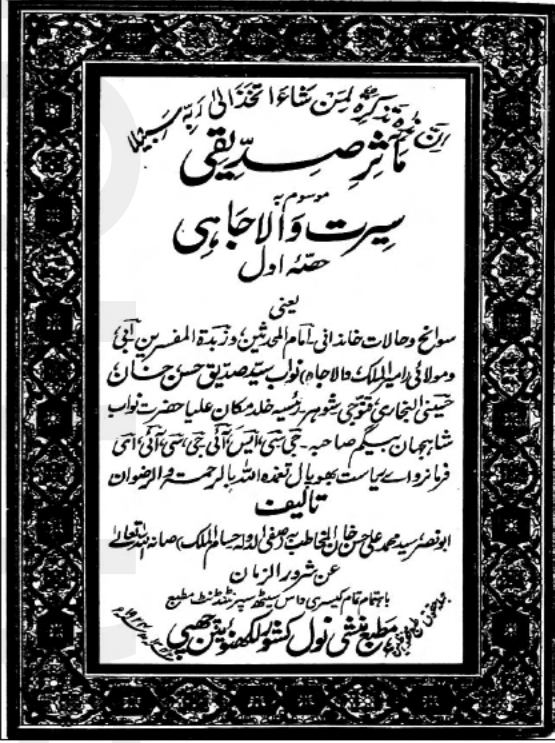 اِنَّ هٰذِهٖ تَذْكِرَةٌ فَمَنْ شَاءَ اتَّخَذَ اِلٰى رَبِّهٖ سَبِيْلًا
مَآثِرِ صِدِّیقی
موسوم بہ
سِیرت وَالا جَاہِی
حصّۂ اول
یعنی
سوانح وحالات خاندانی۔ امام المحدثین وزبدۃ المفسرین ابی
ومولائی (امیر الملک والاجاہ) نواب سید صدیق حسن خان
حسینی البخاری قنوجی شوہر رئیسہ خلد مکان علیا حضرت نواب
شاہجہان بیگم صاحبہ۔ جی، سی، ایس، آئی، جی، سی، آئی، ای
فرمانروائے ریاست بھوپال تغمدہ اللہ بالرحمۃ والرضوان
تالیف
ابو نصر سید محمد علی حسن خان المخاطب بہ (صفی الدولہ حسام الملک) صانہ اللہ تعالیٰ
عن شرور الزمان
باہتمام کیسری داس سیٹھ سپرنٹنڈنٹ مطبع
مطبع منشی نول کشور لکھنؤ میں چھپی